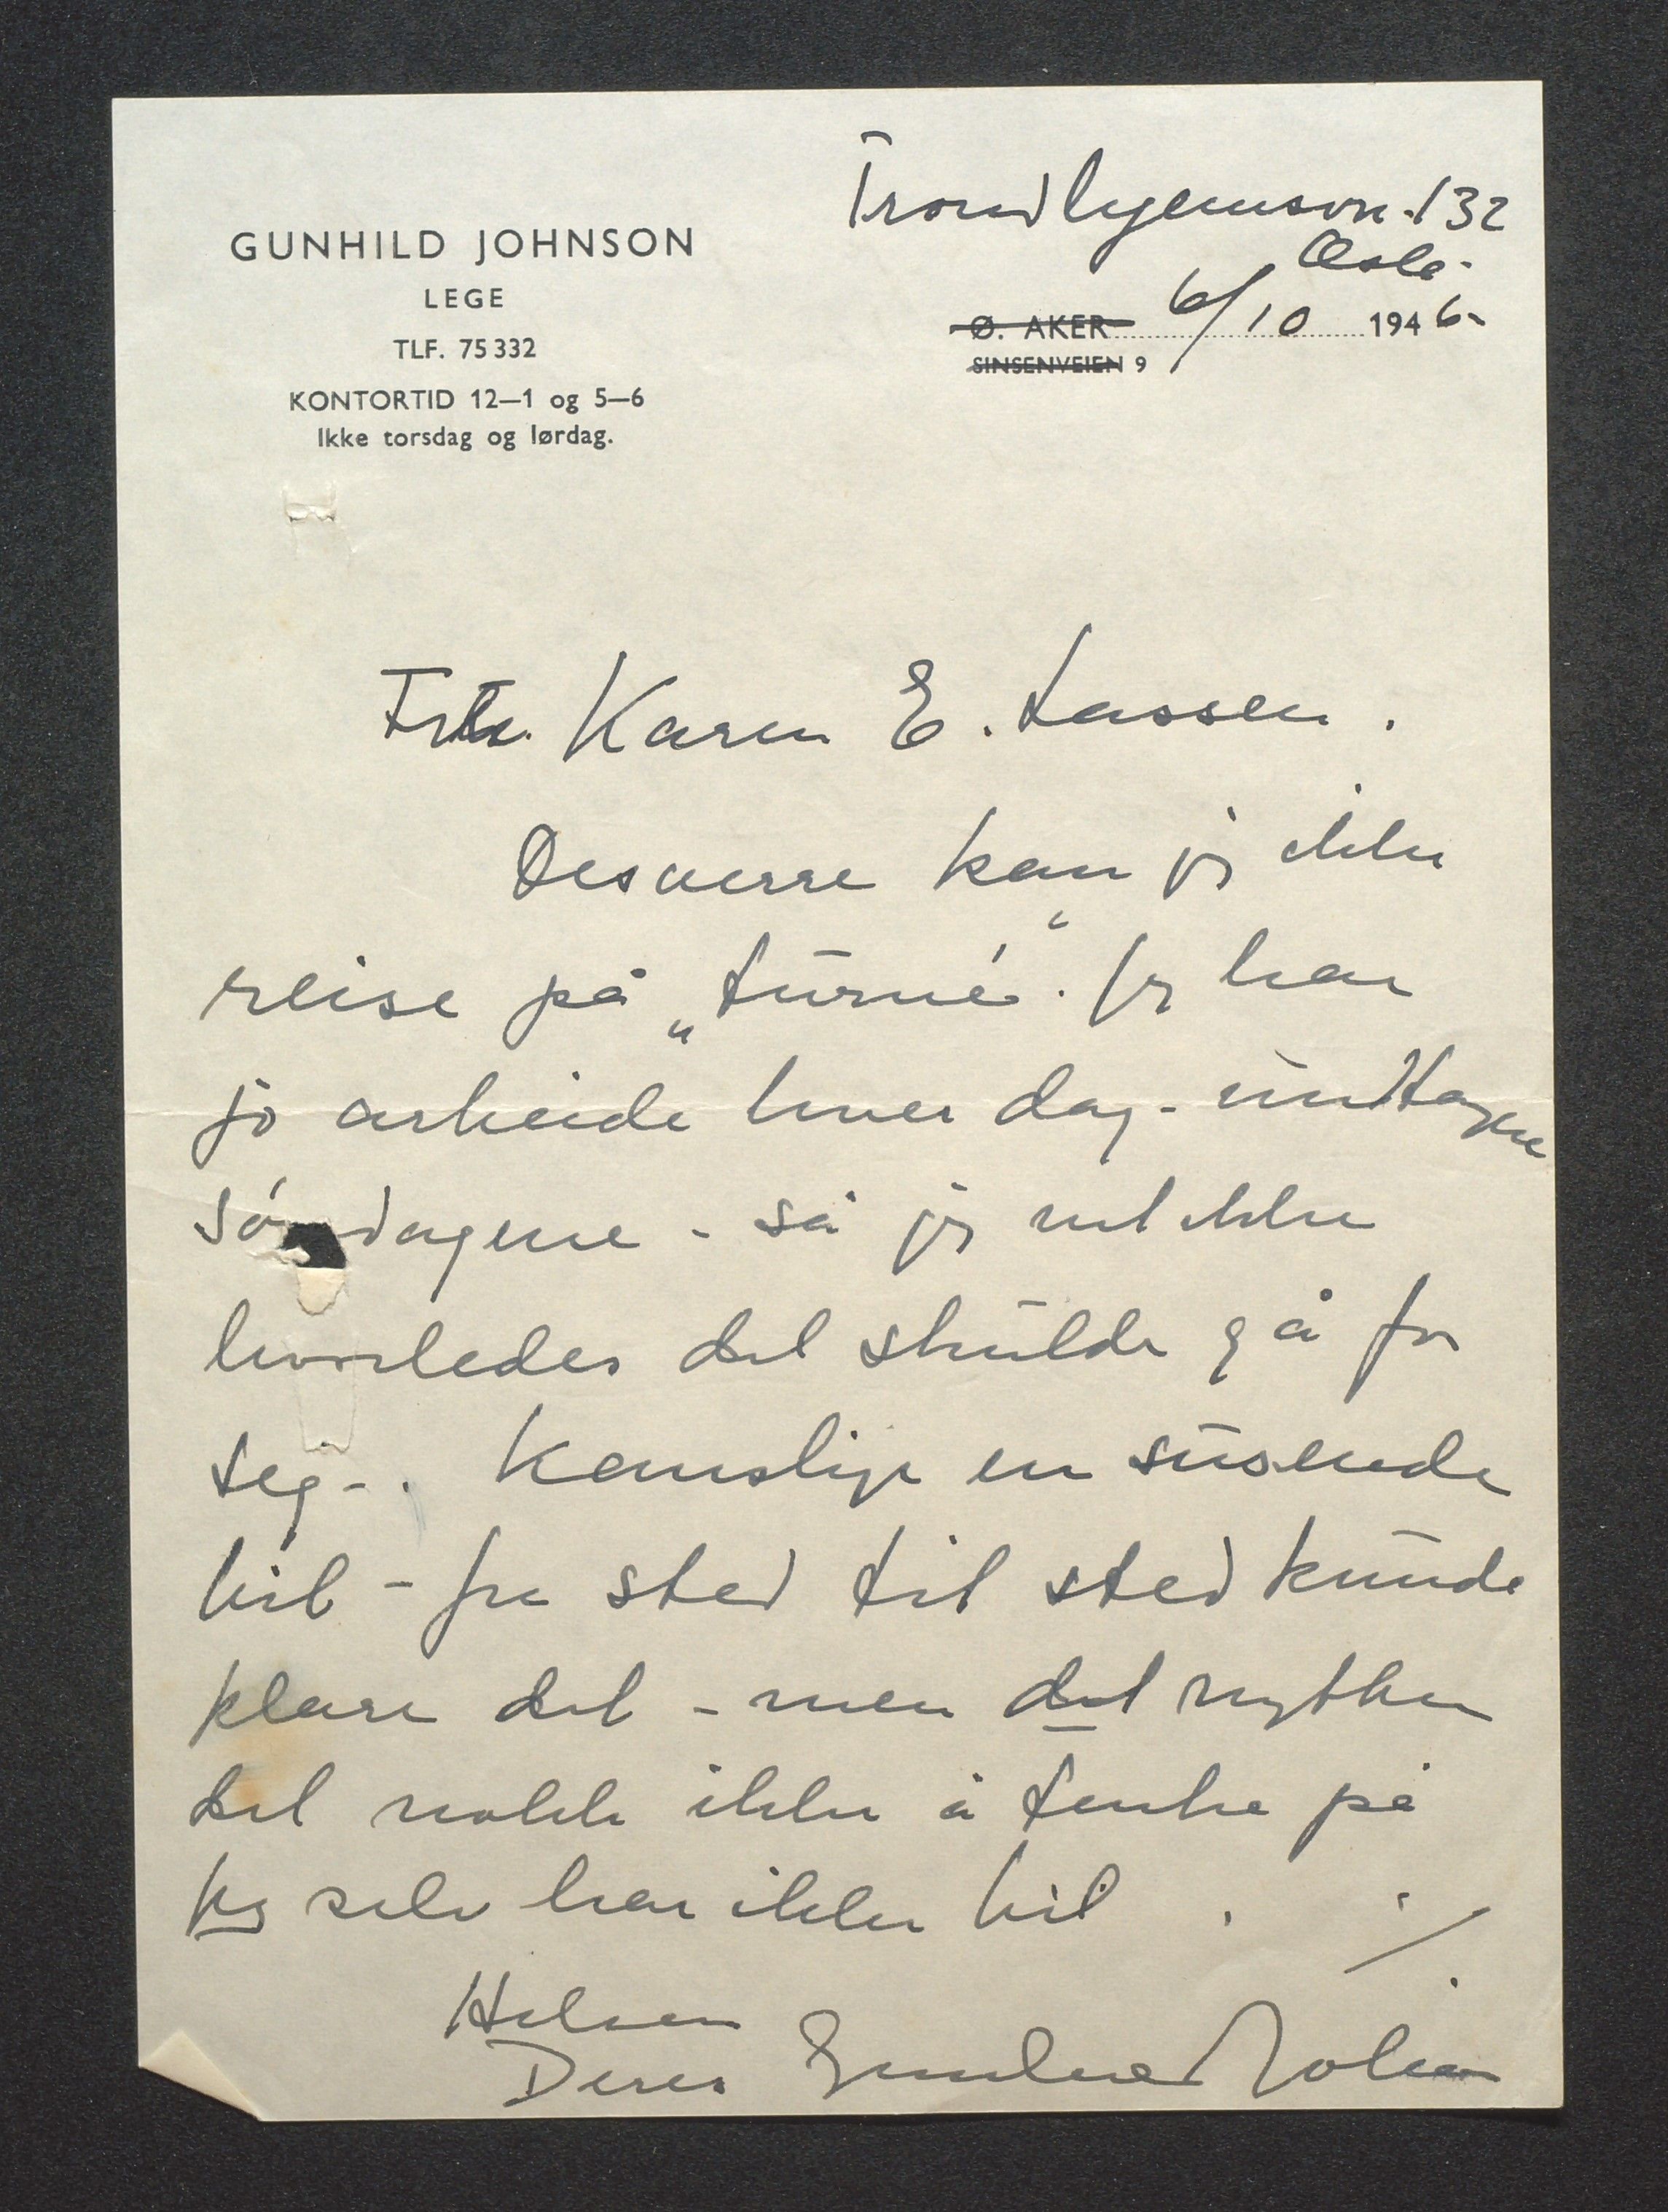 GUNHILD JOHNSON
LEGE
TLF. 75332
KONTORTID 12—1 og 5—6
Ikke torsdag og lørdag.
Trondhjemsvn. 132
Oslo.
Ø. AKER 6/10 1946.
SINSENVEIEN 9
Karen E. Lassen.
Desverre kan jeg ikke
reise på „turné“. Jeg har
jo arbeide hver dag - undtagen
søndagene - så jeg vet ikke
hvorledes det skulde gå for
seg -. Kanskje en susende
bil - fra sted til sted kunde
klare det - men det nytter
det nokk ikke å tenke på
Jeg selv har ikke bil .
Hilsen
Deres Gunhild Johnson